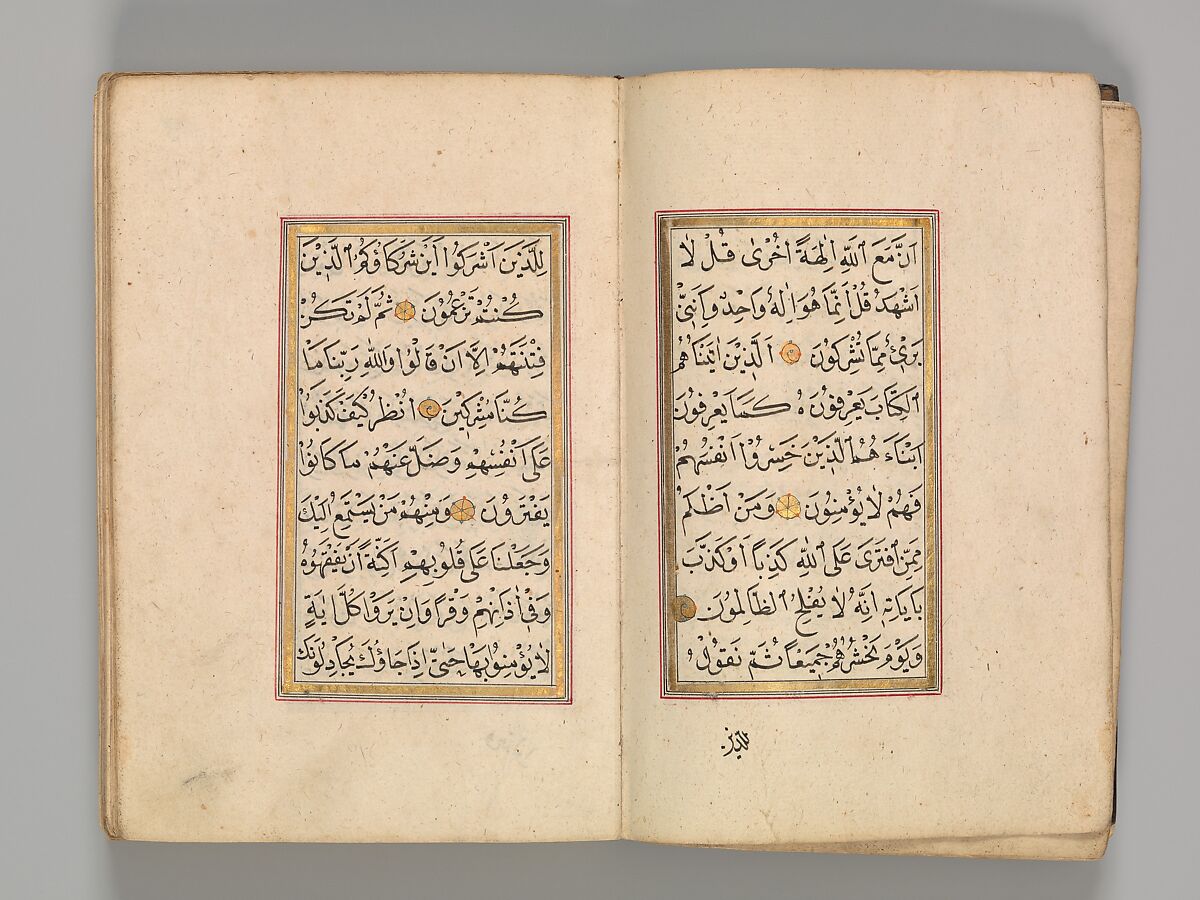 اَنَّ مَعَ ٱللّٰهِ اٰلِهَةً اُخْرٰى قُلْ لَا
اَشْهَدُ قُلْ اِنَّمَا هُوَ اِلٰهٌ وَاحِدٌ وَاِنَّنِى
بَرِىءٌ مِمَّا تُشْرِكُونَ اَلَّذِينَ اٰتَيْنَاهُمُ
ٱلْكِتَابَ يَعْرِفُونَهُ كَمَا يَعْرِفُونَ
اَبْنَاءَ هُمُ ٱلَّذِينَ خَسِرُوا اَنْفُسَهُمْ
فَهُمْ لَا يُؤْمِنُونَ وَمَنْ اَظْلَمُ
مِمَّنِ ٱفْتَرٰى عَلَى ٱللّٰهِ كَذِبًا اَوْ كَذَّبَ
بِاٰيَاتِهِ اِنَّهُ لَا يُفْلِحُ ٱلظَّالِمُونَ
وَيَوْمَ نَحْشُرُهُمْ جَمِيعًا ثُمَّ نَقُولُ
للذين
لِلَّذِينَ اَشْرَكُوا اَيْنَ شُرَكَاؤُكُمُ ٱلَّذِينَ
كُنْتُمْ تَزْعُمُونَ ثُمَّ لَمْ تَكُنْ
فِتْنَتُهُمْ اِلَّا اَنْ قَالُوا وَٱللّٰهِ رَبِّنَا مَا
كُنَّا مُشْرِكِينَ اُنْظُرْ كَيْفَ كَذَبُوا
عَلٰى اَنْفُسِهِمْ وَضَلَّ عَنْهُمْ مَا كَانُوا
يَفْتَرُونَ وَمِنْهُمْ مَنْ يَسْتَمِعُ اِلَيْكَ
وَجَعَلْنَا عَلٰى قُلُوبِهِمْ اَكِنَّةً اَنْ يَفْقَهُوهُ
وَفِى اٰذَانِهِمْ وَقْرًا وَاِنْ يَرَوْا كُلَّ اٰيَةٍ
لَا يُؤْمِنُوا بِهَا حَتّٰى اِذَا جَاؤُكَ يُجَادِلُونَكَ